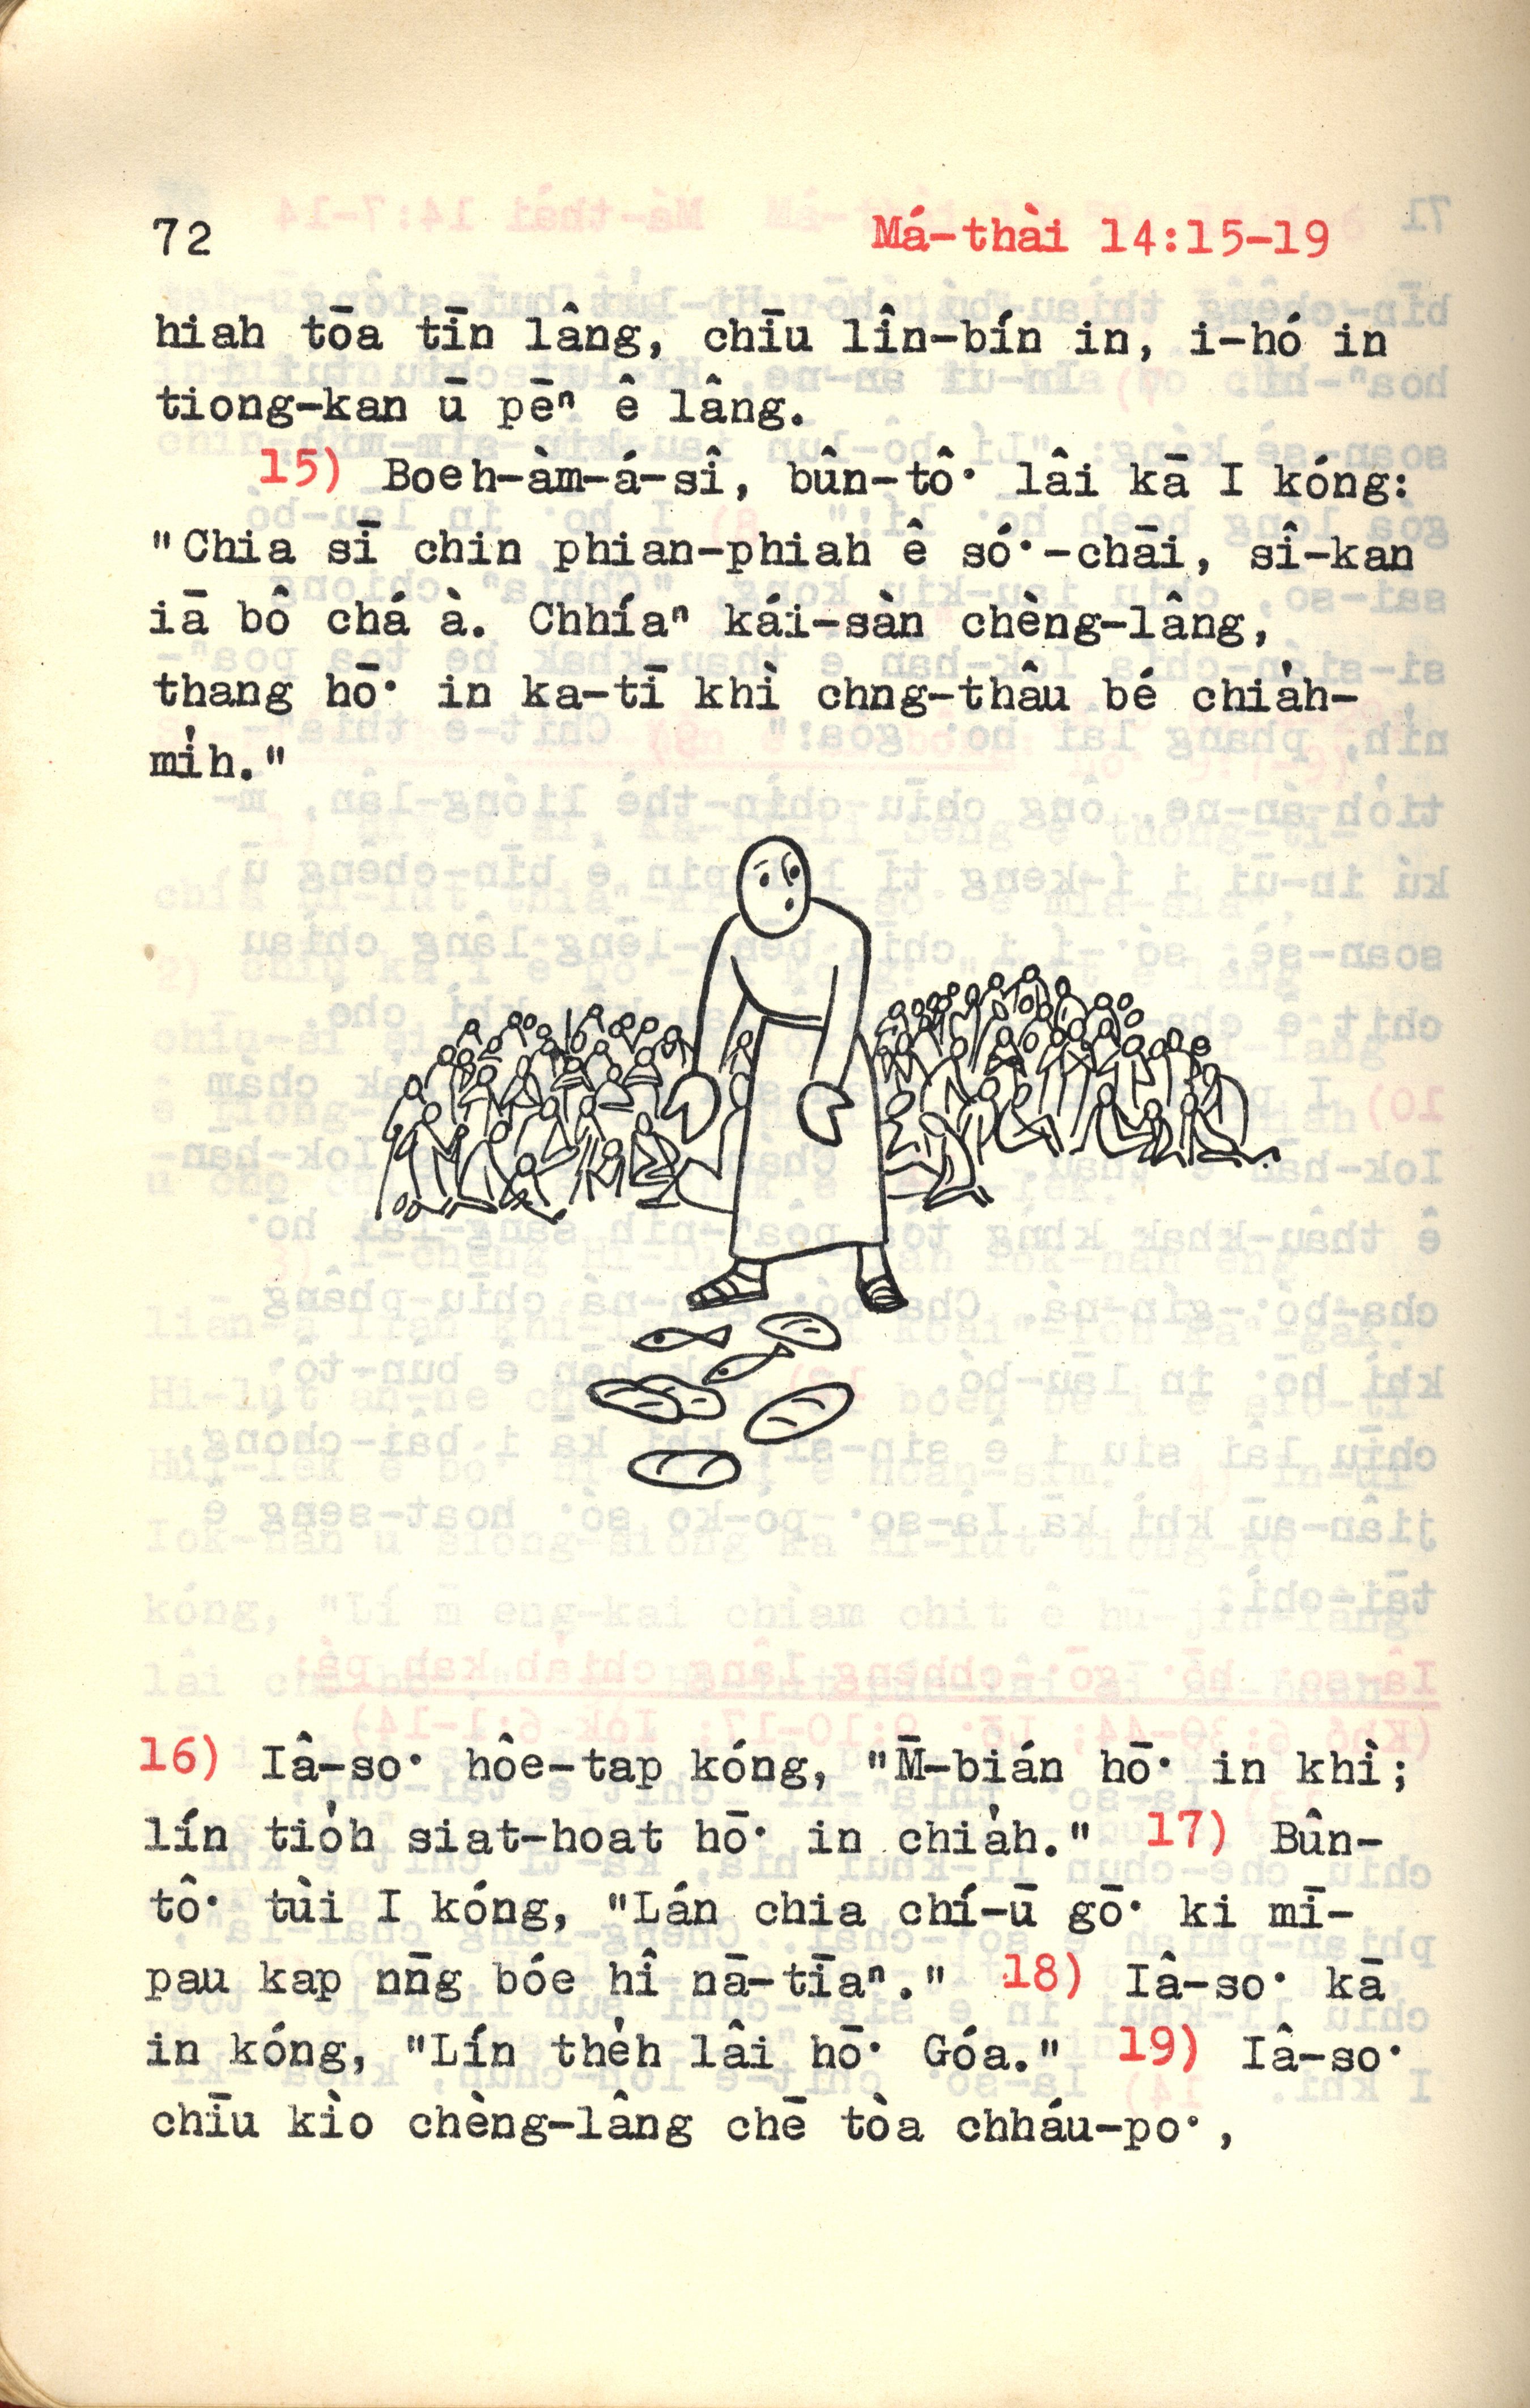 72 Má-thài 14:15-19
hiah tōa tīn lâng, chīu lîn-bín in, i-hó in
tiong-kan ū pēⁿ ê lâng.
15) Boeh-àm-á-sî, bûn-tô͘ lâi kā I kóng:
"Chia sī chin phian-phiah ê só͘-chāi, sî-kan
iā bô chá à. Chhíaⁿ kái-sàn chèng-lâng,
thang hō͘ in ka-tī khì chng-thâu bé chia̍h-
mi̍h."
16) Iâ-so͘ hôe-tap kóng, "M̄-bián hō͘ in khì;
lín tio̍h siat-hoat hō͘ in chia̍h." 17) Bûn-
tô͘ tùi I kóng, "Lán chia chí-ū gō͘ ki mī-
pau kap nn̄g bóe hî nā-tīaⁿ." 18) Iâ-so͘ kā
in kóng, "Lín the̍h lâi hō͘ Góa." 19) Iâ-so͘
chīu kìo chèng-lâng chē tòa chháu-po͘,